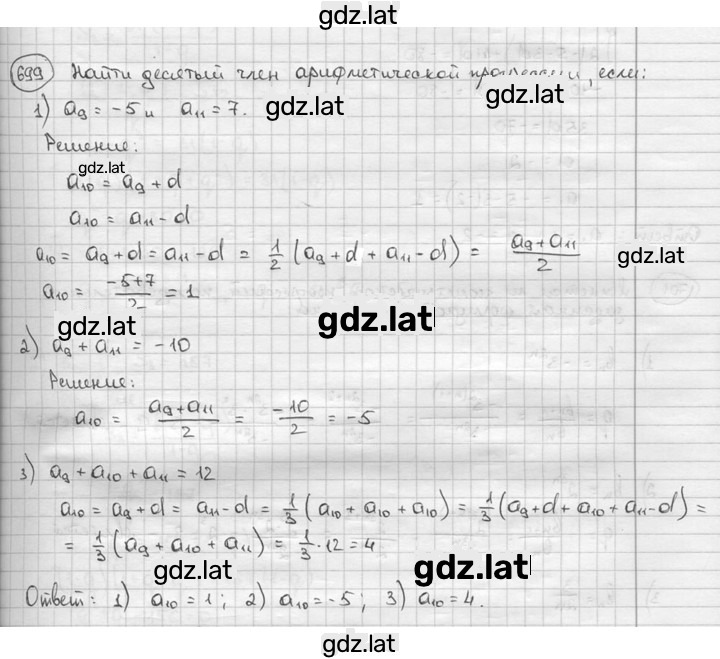 gdz.lat
699 Найти десятый член арифметической прогрессии, если:
gdz.lat
1) a₉ = -5 и a₁₁ = 7.
gdz.lat
Решение:
gdz.lat
a₁₀ = a₉ + d
a₁₀ = a₁₁ - d
a₁₀ = a₉ + d = a₁₁ - d = 1/2 (a₉ + d + a₁₁ - d) = (a₉ + a₁₁)/2
gdz.lat
a₁₀ = (-5+7)/2 = 1
gdz.lat
gdz.lat
2) a₉ + a₁₁ = -10
Решение:
a₁₀ = (a₉ + a₁₁)/2 = -10/2 = -5
gdz.lat
3) a₉ + a₁₀ + a₁₁ = 12
a₁₀ = a₉ + d = a₁₁ - d = 1/3 (a₁₀ + a₁₀ + a₁₀) = 1/3 (a₉ + d + a₁₀ + a₁₁ - d) =
= 1/3 (a₉ + a₁₀ + a₁₁) = 1/3 · 12 = 4
gdz.lat
gdz.lat
Ответ: 1) a₁₀ = 1; 2) a₁₀ = -5; 3) a₁₀ = 4.
gdz.lat